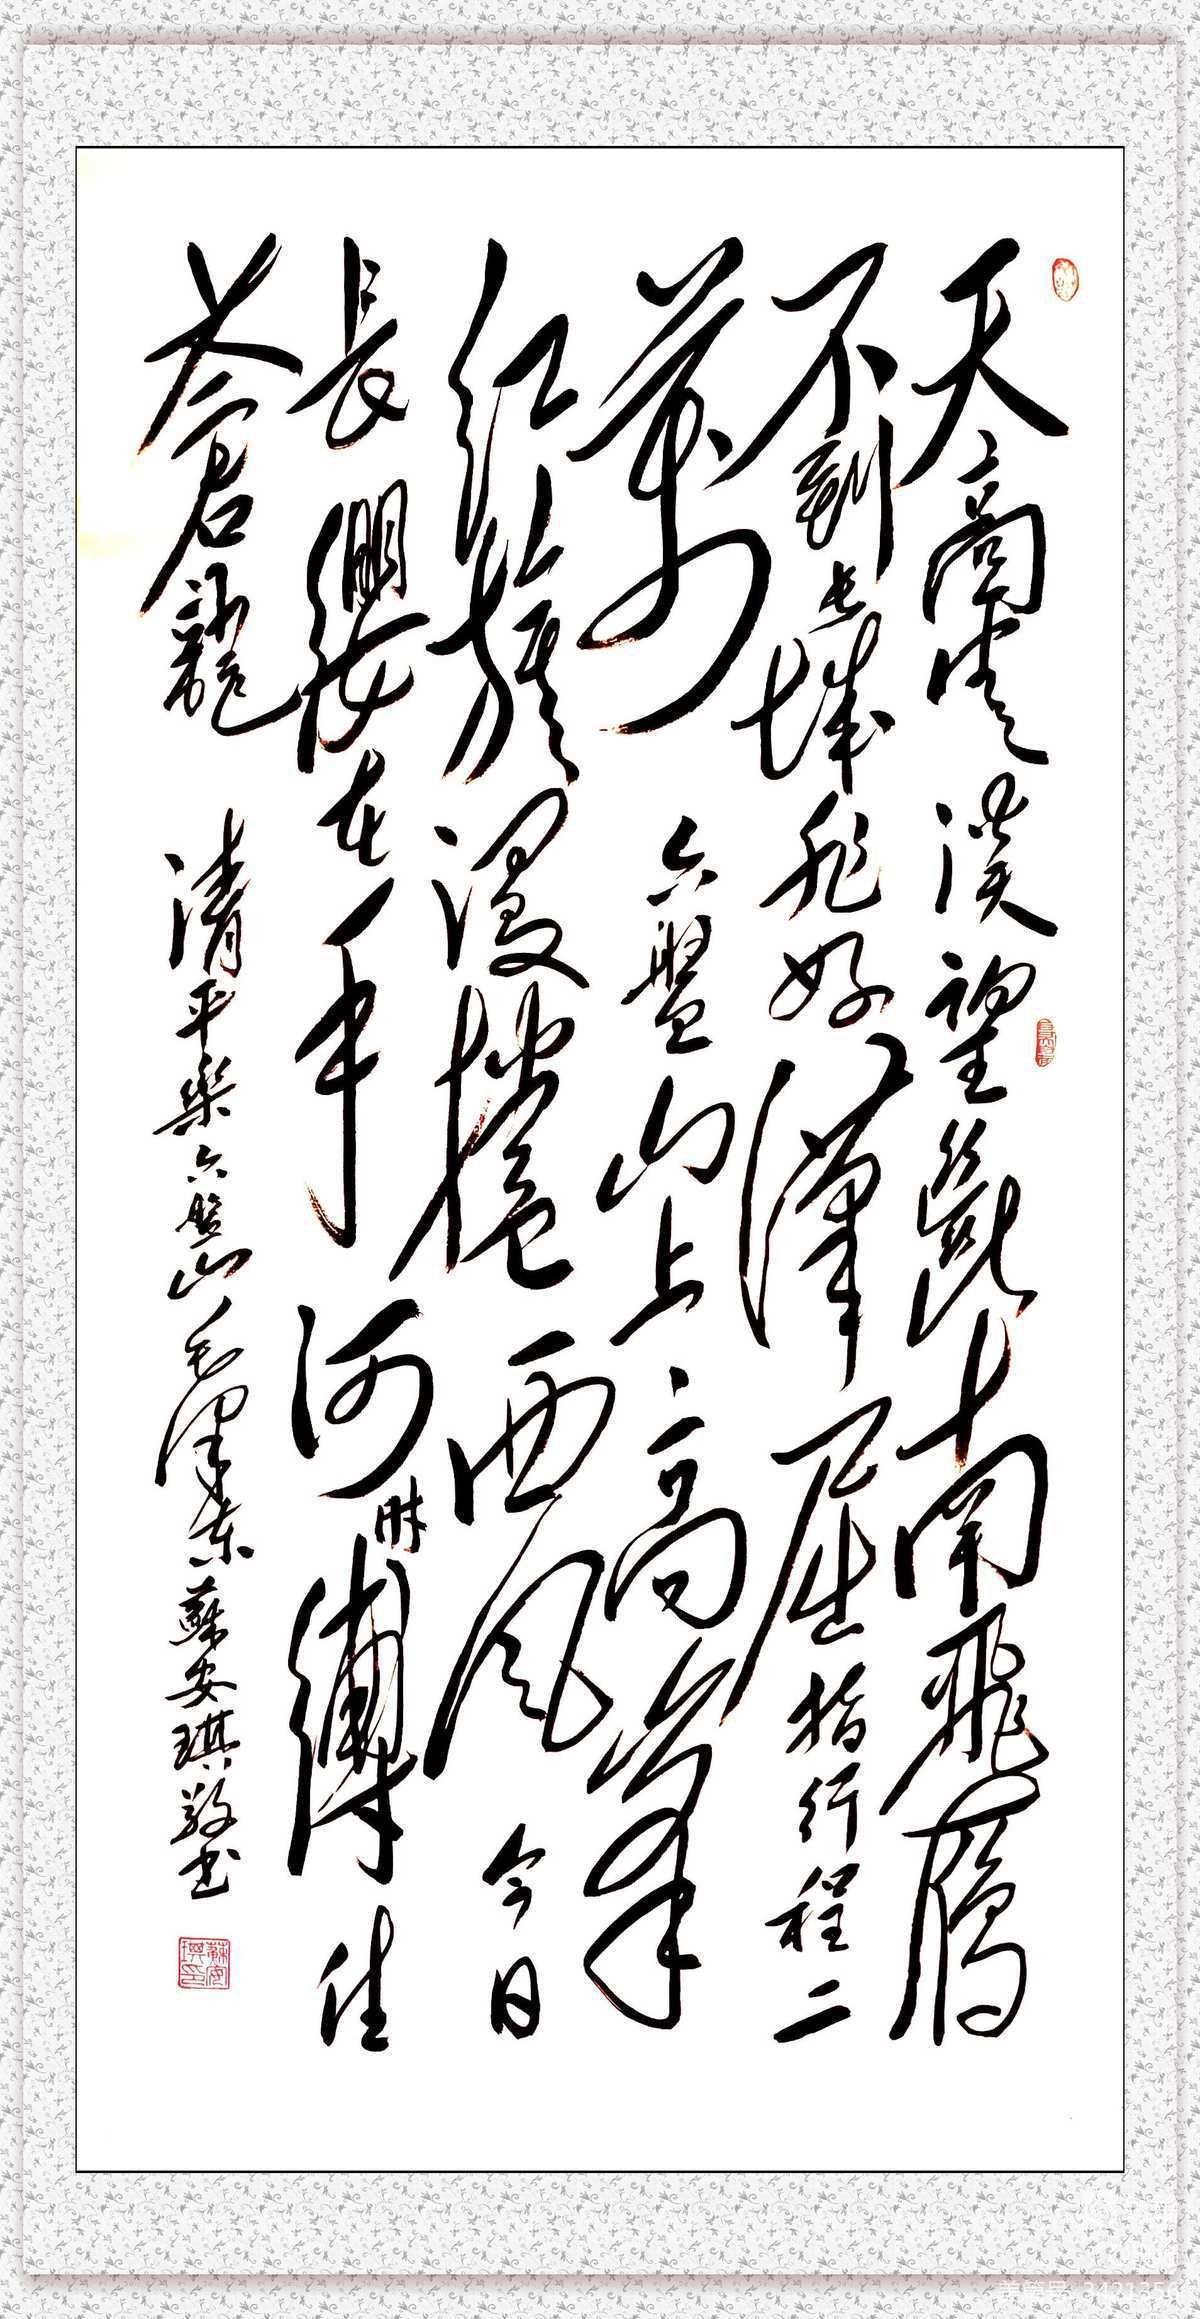 天高雲淡望斷南飛鴈
不到长城非好漢屈指行程二
萬六盤山上高峯
紅旗漫捲西風今日
長纓在手何時縛住
蒼龍 清平樂六盤山毛澤東蘇安琪敬书
蘇安琪印
美篇号 3421356